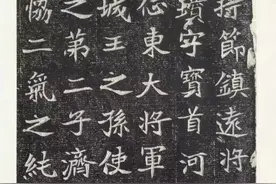 持節鎮遠將
瓚字寶首河
東大將軍
城王之孫使
之第二子濟
協二氣之純